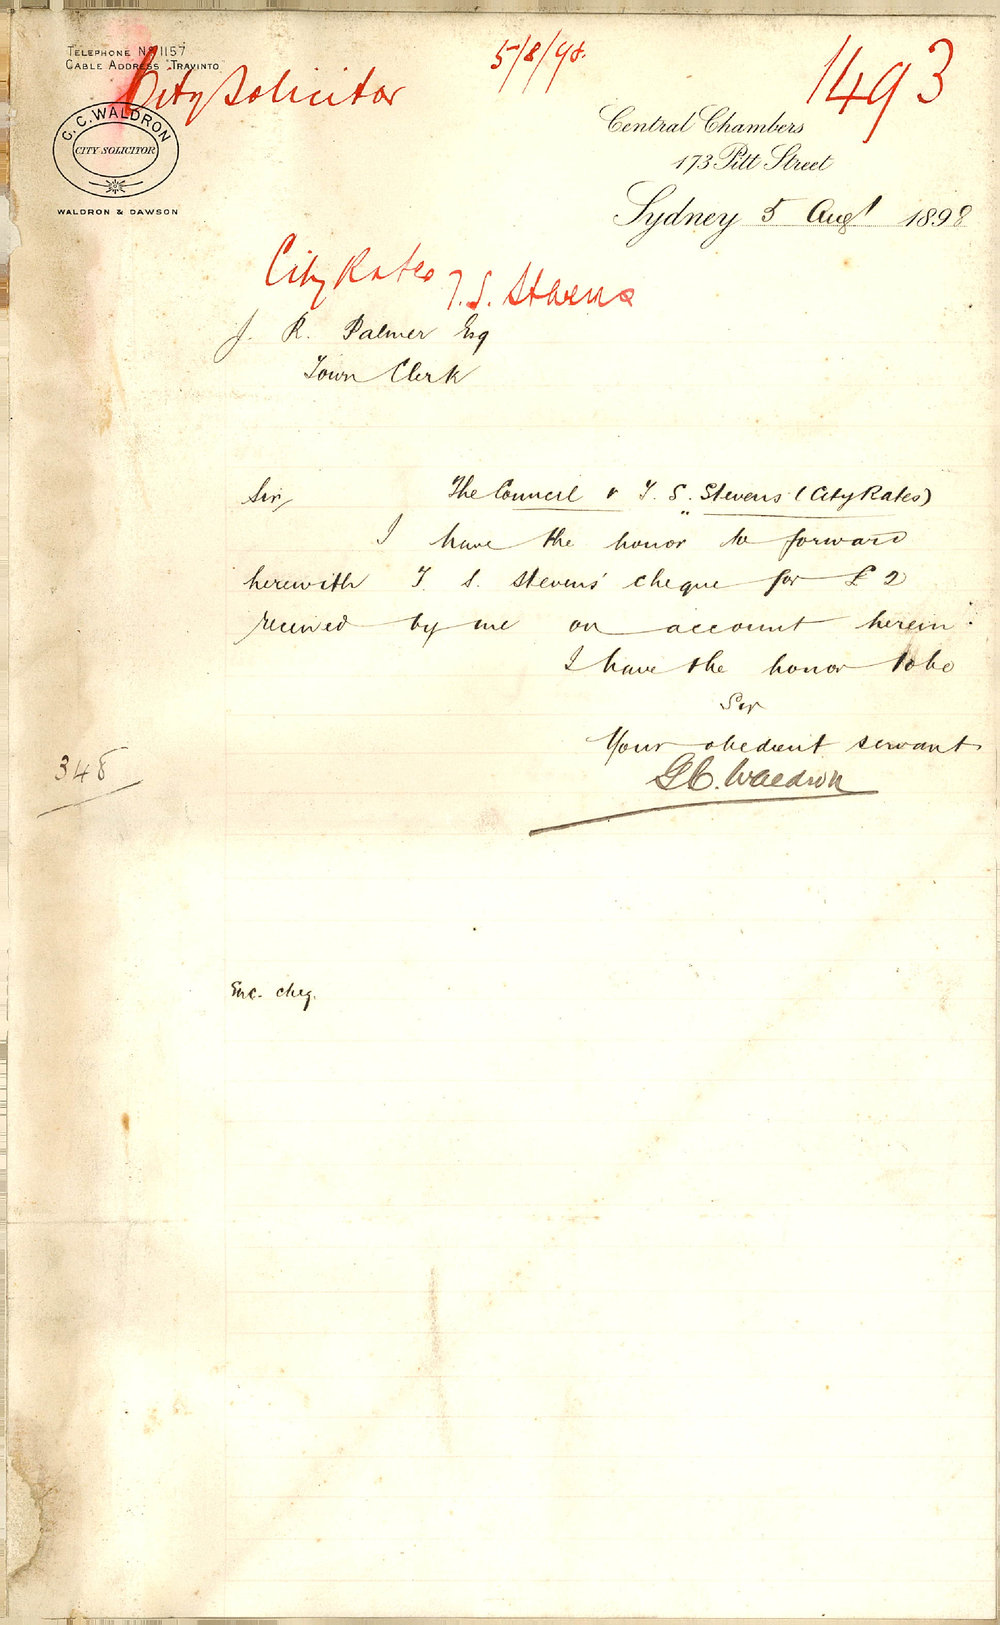 TELEPHONE No 1157
CABLE ADDRESS "TRAVINTO
City Solicitor
5/8/98.
1493
G. C. WALDRON
CITY SOLICITOR
WALDRON & DAWSON
Central Chambers
173 Pitt Street
Sydney 5 Augt 1898
City Rates T. S. Stevens
J. R. Palmer Esq
Town Clerk
Sir, The Council v T. S. Stevens (City Rates)
I have the honor to forward
herewith T. S. Stevens' cheque for £2
received by me on account herein.
I have the honor to be
Sir
Your obedient servant
G C. Waldron
348
Enc. cheq.